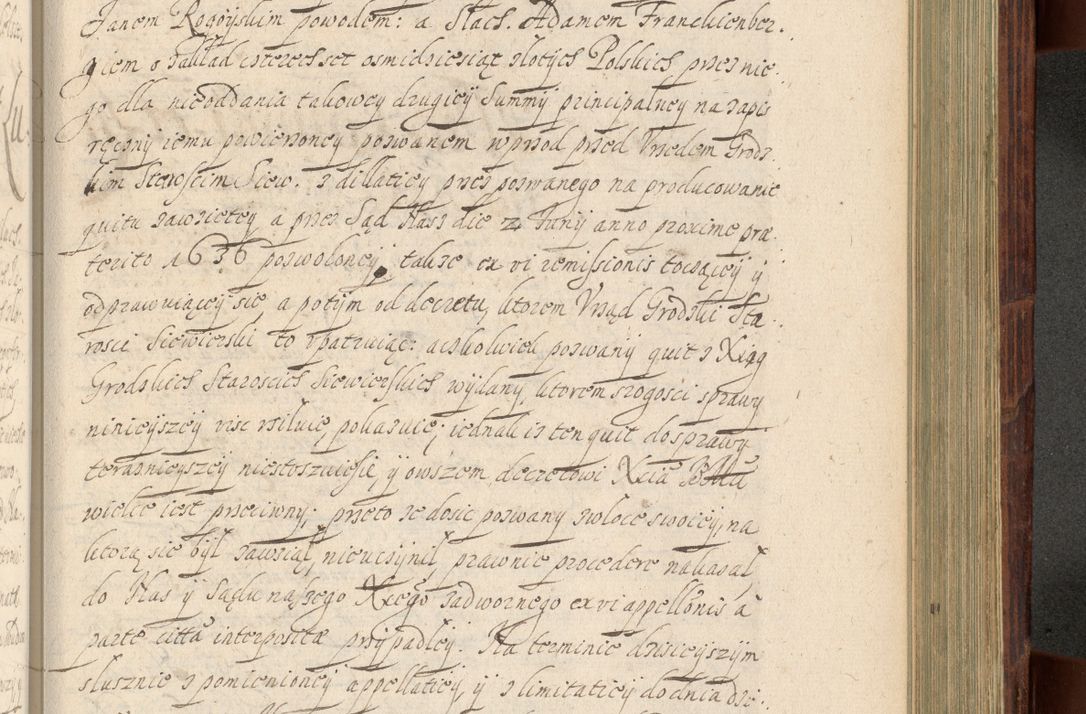 Janem Rogoyskim powodem: a Slach. Adamem Franckienber.
giem o zakład czterechset osmidziesiąt złotych Polskich przez nie.
go dla nieoddania takowey drugiey Summy principalney na zapis
ręczny iemu powierzoney pozwanem wprzod przed Vrzedem Grodz.
kim Staroscim Siew. z dillaticy przez pozwanego na producowanie
quitu zawzietey a przez Sąd Nasz die 2 Juny anno proxime præ.
terito 1636 pozwoloney, także ex vi remissionis toczącey y
odprawuiącey sie a potym od decretu, ktorem Vrząd Grodzki Sta.
rosci Siewierski to vpatruiąc: aczkolwiek pozwany quit z Xiąg
Grodzkich Staroscich Siewierskich wydany, ktorem srogosci sprawy
ninieyszey visc vsiłuie, pokazuie; iednak iz ten quit do sprawy
teraznieyszey niestoszuiesie, y owszem decretowi Xcia
wielce iest przeciwny; przeto ze dosic pozwany zwłoce swoiey, na
ktorą sie był zawziął, nieuczynił prawnie procedere nakazał,
do Nas y Sądu naszego Xcego zadwornego ex vi appellõnis a
parte citta interposita przypadłey. Na terminie dzisieyszym
slusznie z pomienioney appellaticy, y z limitaticy do dnia dzi.